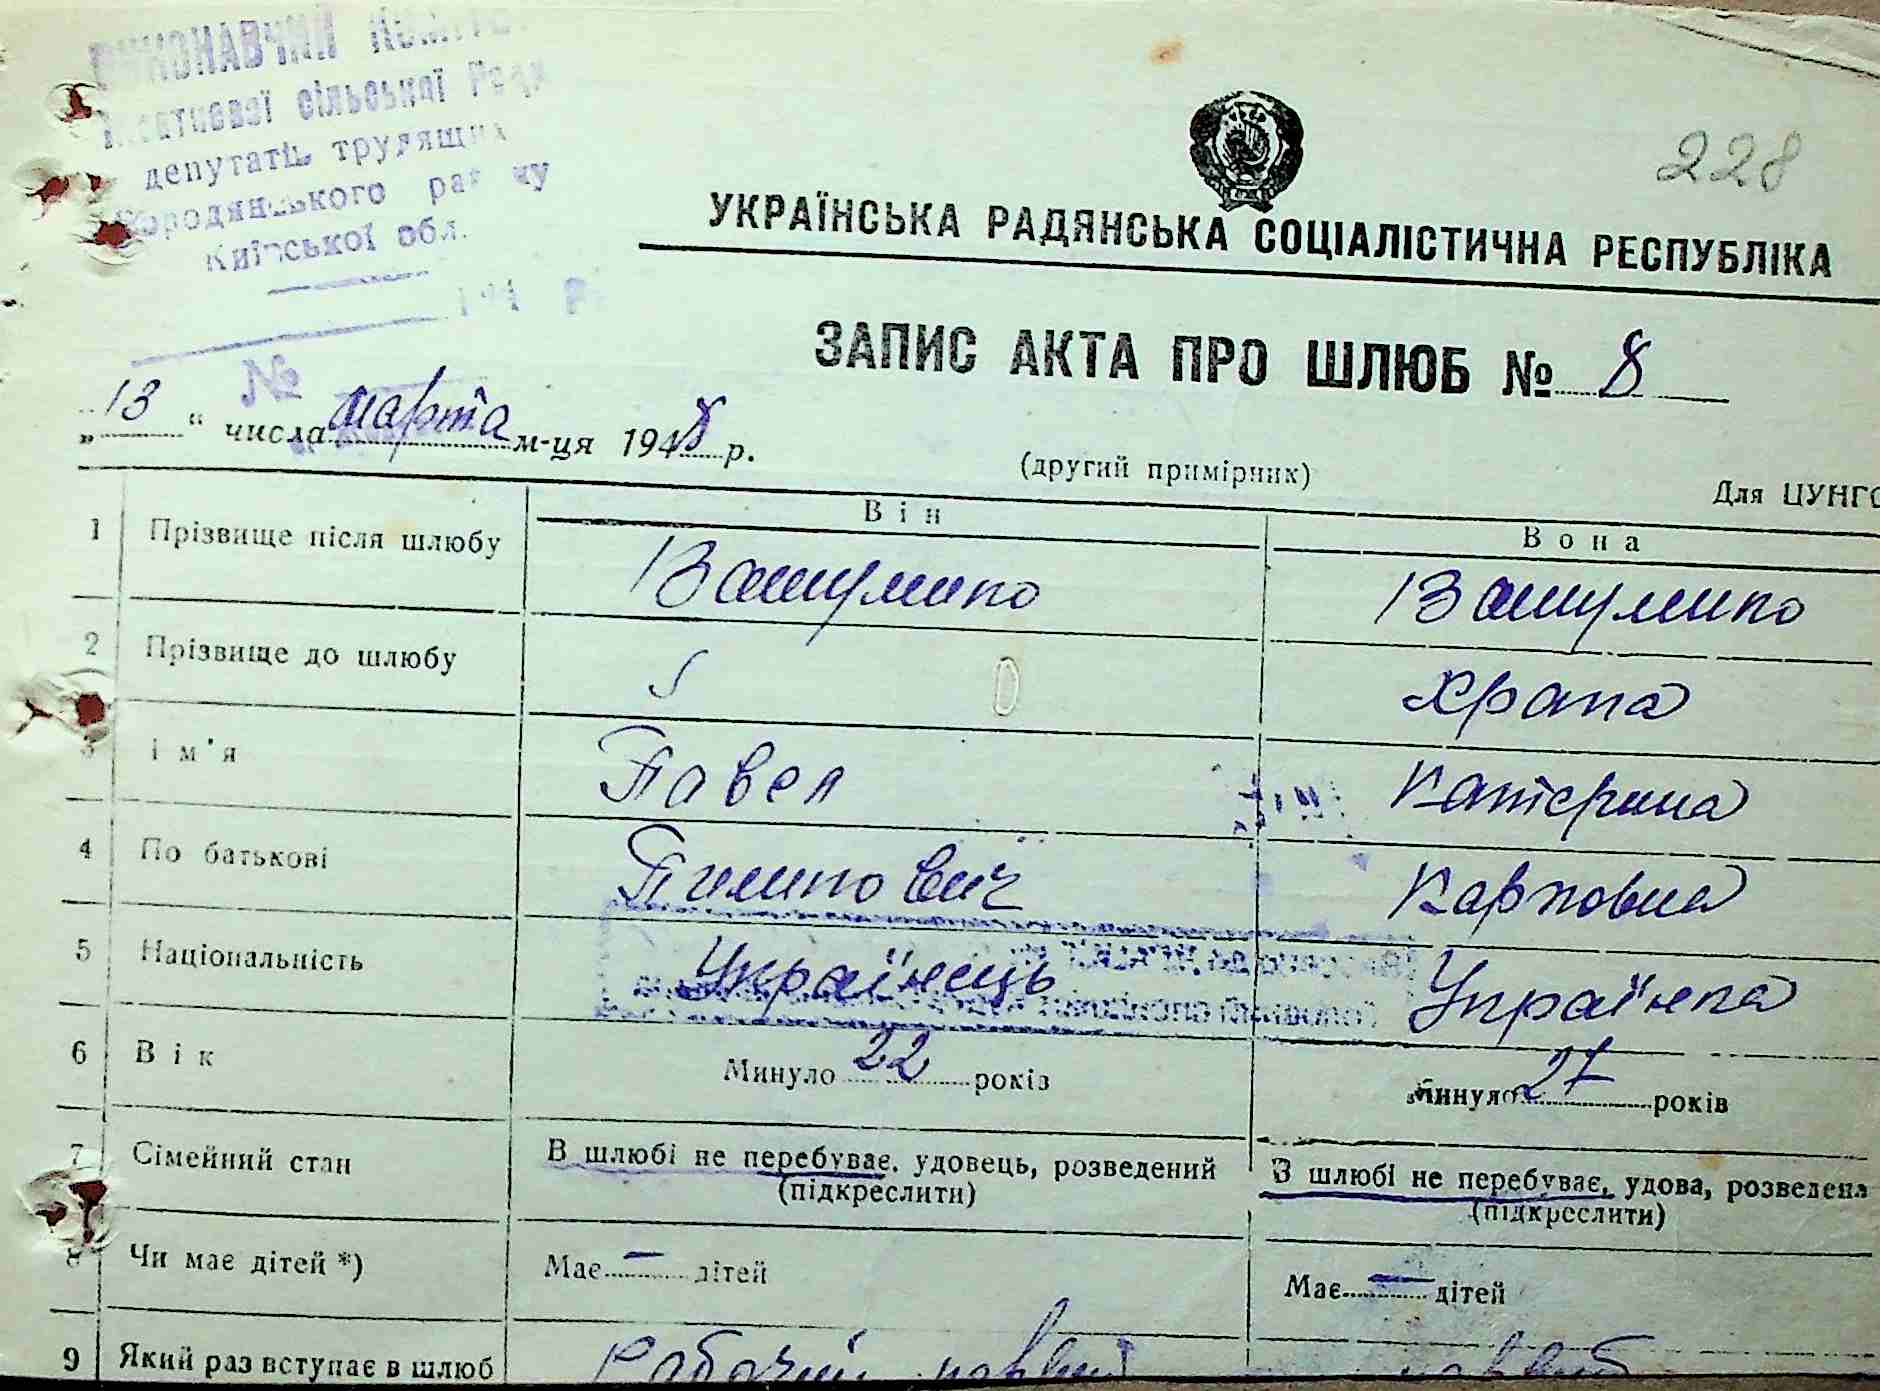 ВИКОНАВЧИЙ
сільської Ради
депутатів трудящих
Бородянського району
Київської обл.
228
УКРАЇНСЬКА РАДЯНСЬКА СОЦІАЛІСТИЧНА РЕСПУБЛІКА
ЗАПИС АКТА ПРО ШЛЮБ № 8
№
„13“ числа марта м-ця 1948 р.
(другий примірник)
Для ЦУНГО
Він Вона
1 Прізвище після шлюбу Вашуленко Вашуленко
2 Прізвище до шлюбу Храпа
3 Ім'я Павел Катерина
4 По батькові Пилипович Карповна
5 Національність Українець Українка
6 Вік Минуло 22 років Минуло 27 років
7 Сімейний стан В шлюбі не перебуває, удовець, розведений В шлюбі не перебуває, удова, розведена
(підкреслити) (підкреслити)
8 Чи має дітей *) Має — дітей Має — дітей
9 Який раз вступає в шлюб